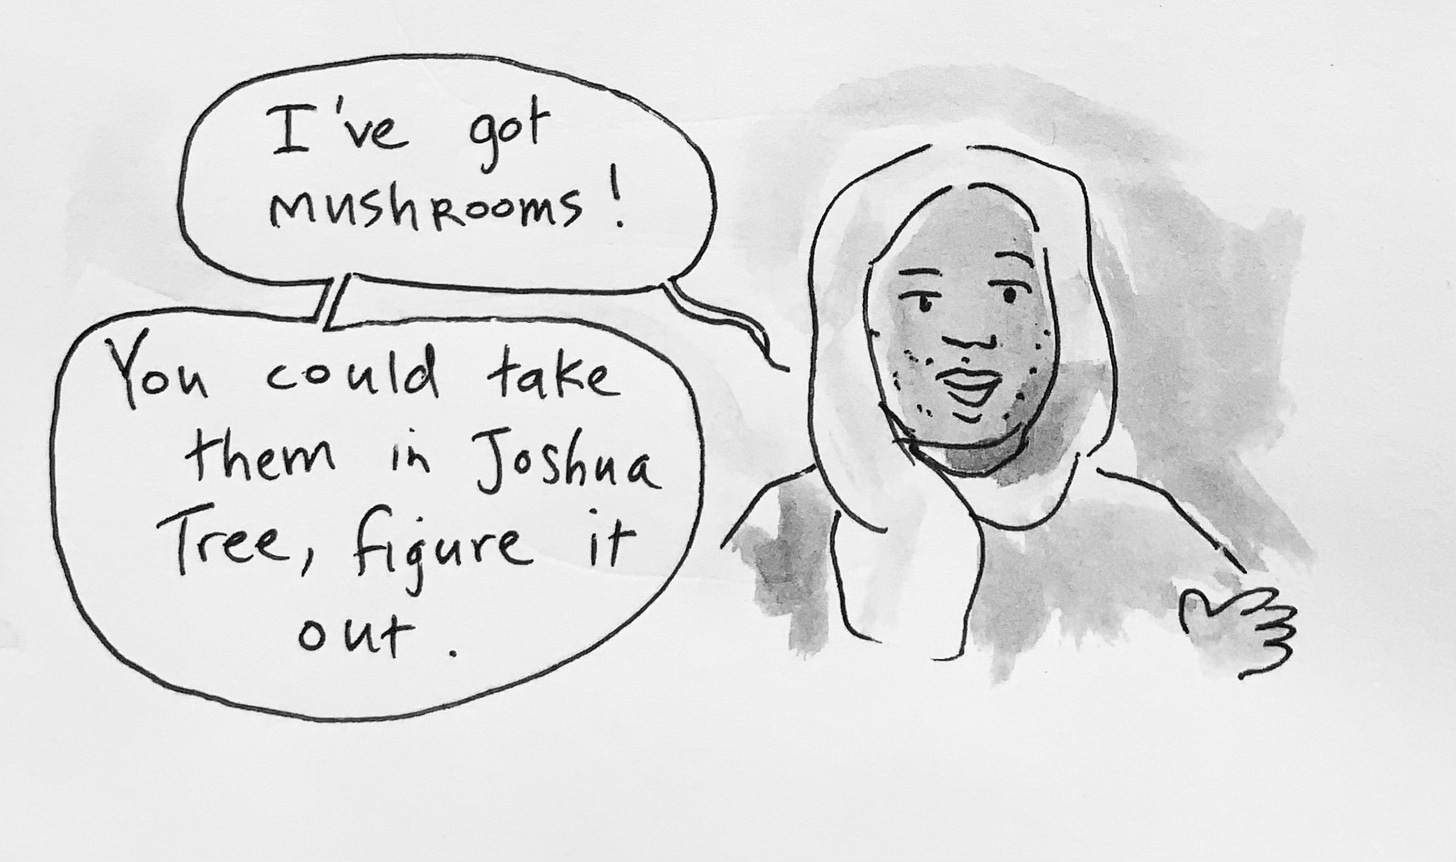 I've got
mushrooms!
You could take
them in Joshua
Tree, figure it
out.